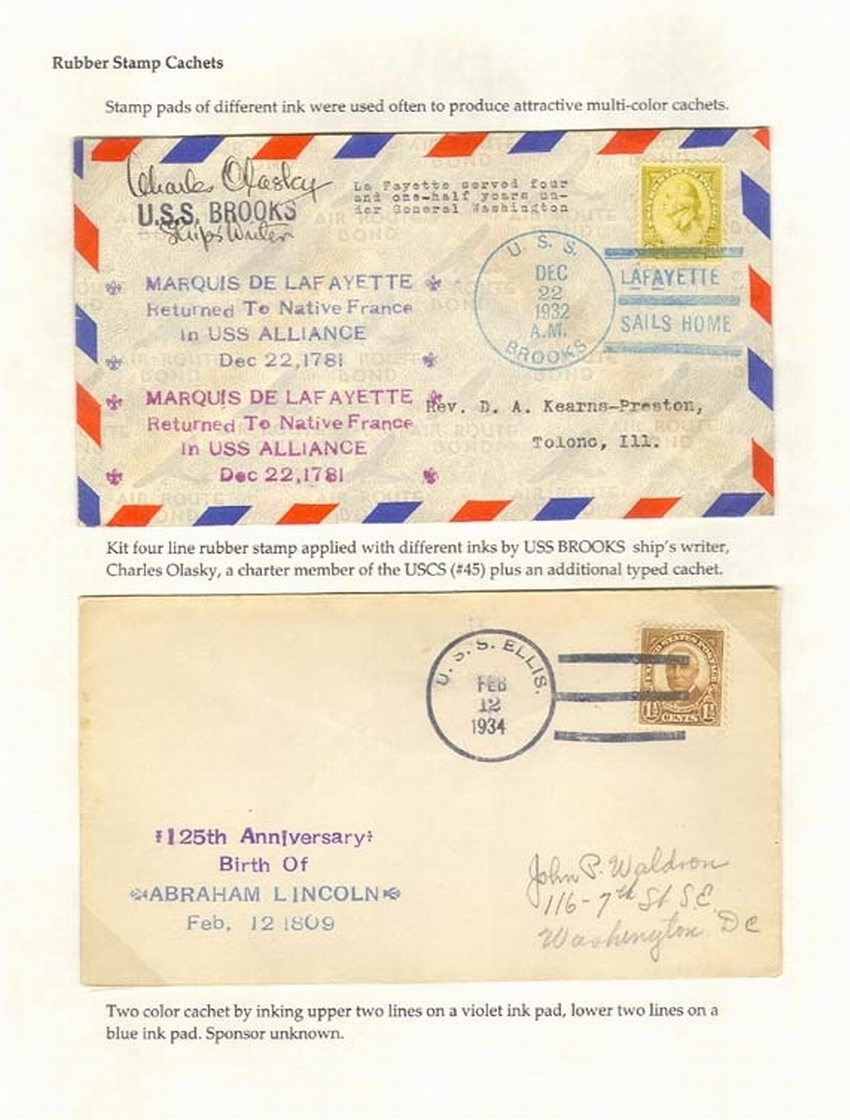 Rubber Stamp Cachets
Stamp pads of different ink were used often to produce attractive multi-color cachets.
Charles Olasky
U.S.S. BROOKS
Ship's Writer
La Fayette served four
and one-half years un-
der General Washington
U. S. S.
DEC
22
1932
A.M.
BROOKS
LAFAYETTE
SAILS HOME
MARQUIS DE LAFAYETTE
Returned To Native France
In USS ALLIANCE
Dec 22,1781
MARQUIS DE LAFAYETTE
Returned To Native France
In USS ALLIANCE
Dec 22,1781
Rev. D. A. Kearns-Preston,
Tolono, Ill.
AIR ROUTE
BOND
Kit four line rubber stamp applied with different inks by USS BROOKS ship's writer,
Charles Olasky, a charter member of the USCS (#45) plus an additional typed cachet.
U. S. S. ELLIS.
FEB
12
1934
UNITED STATES POSTAGE
1½ CENTS 1½
125th Anniversary
Birth Of
ABRAHAM LINCOLN
Feb. 12 1809
John P. Waldron
116-7th St S.E.
Washington DC
Two color cachet by inking upper two lines on a violet ink pad, lower two lines on a
blue ink pad. Sponsor unknown.